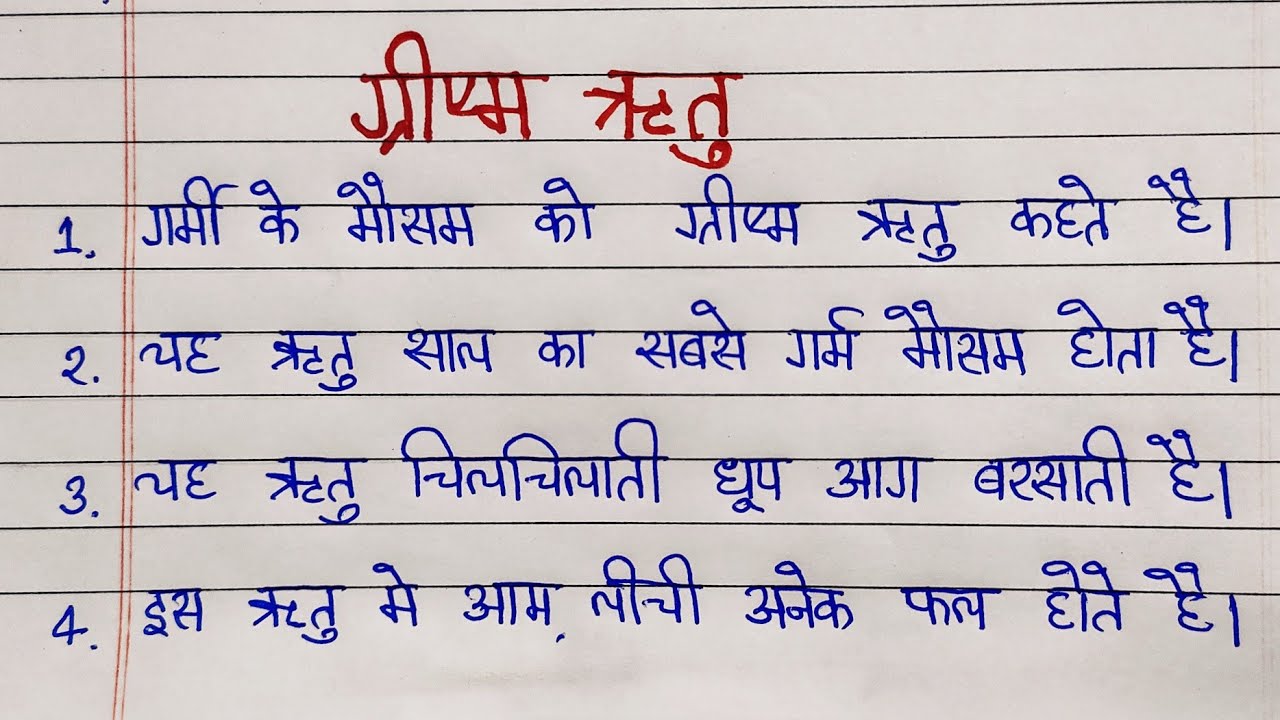 ग्रीष्म ऋतु
1. गर्मी के मौसम को ग्रीष्म ऋतु कहते है।
२. यह ऋतु साल का सबसे गर्म मौसम होता है।
3. यह ऋतु चिलचिलाती धूप आग बरसाती है।
4. इस ऋतु मे आम, लीची अनेक फल होते है।